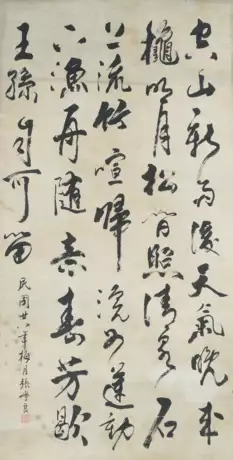 空山新雨後天氣晚來
龝明月松間照清泉石
上流竹喧歸浣女蓮動
下漁舟隨意春芳歇
王孫自可留
民國廿八年梅月張學良